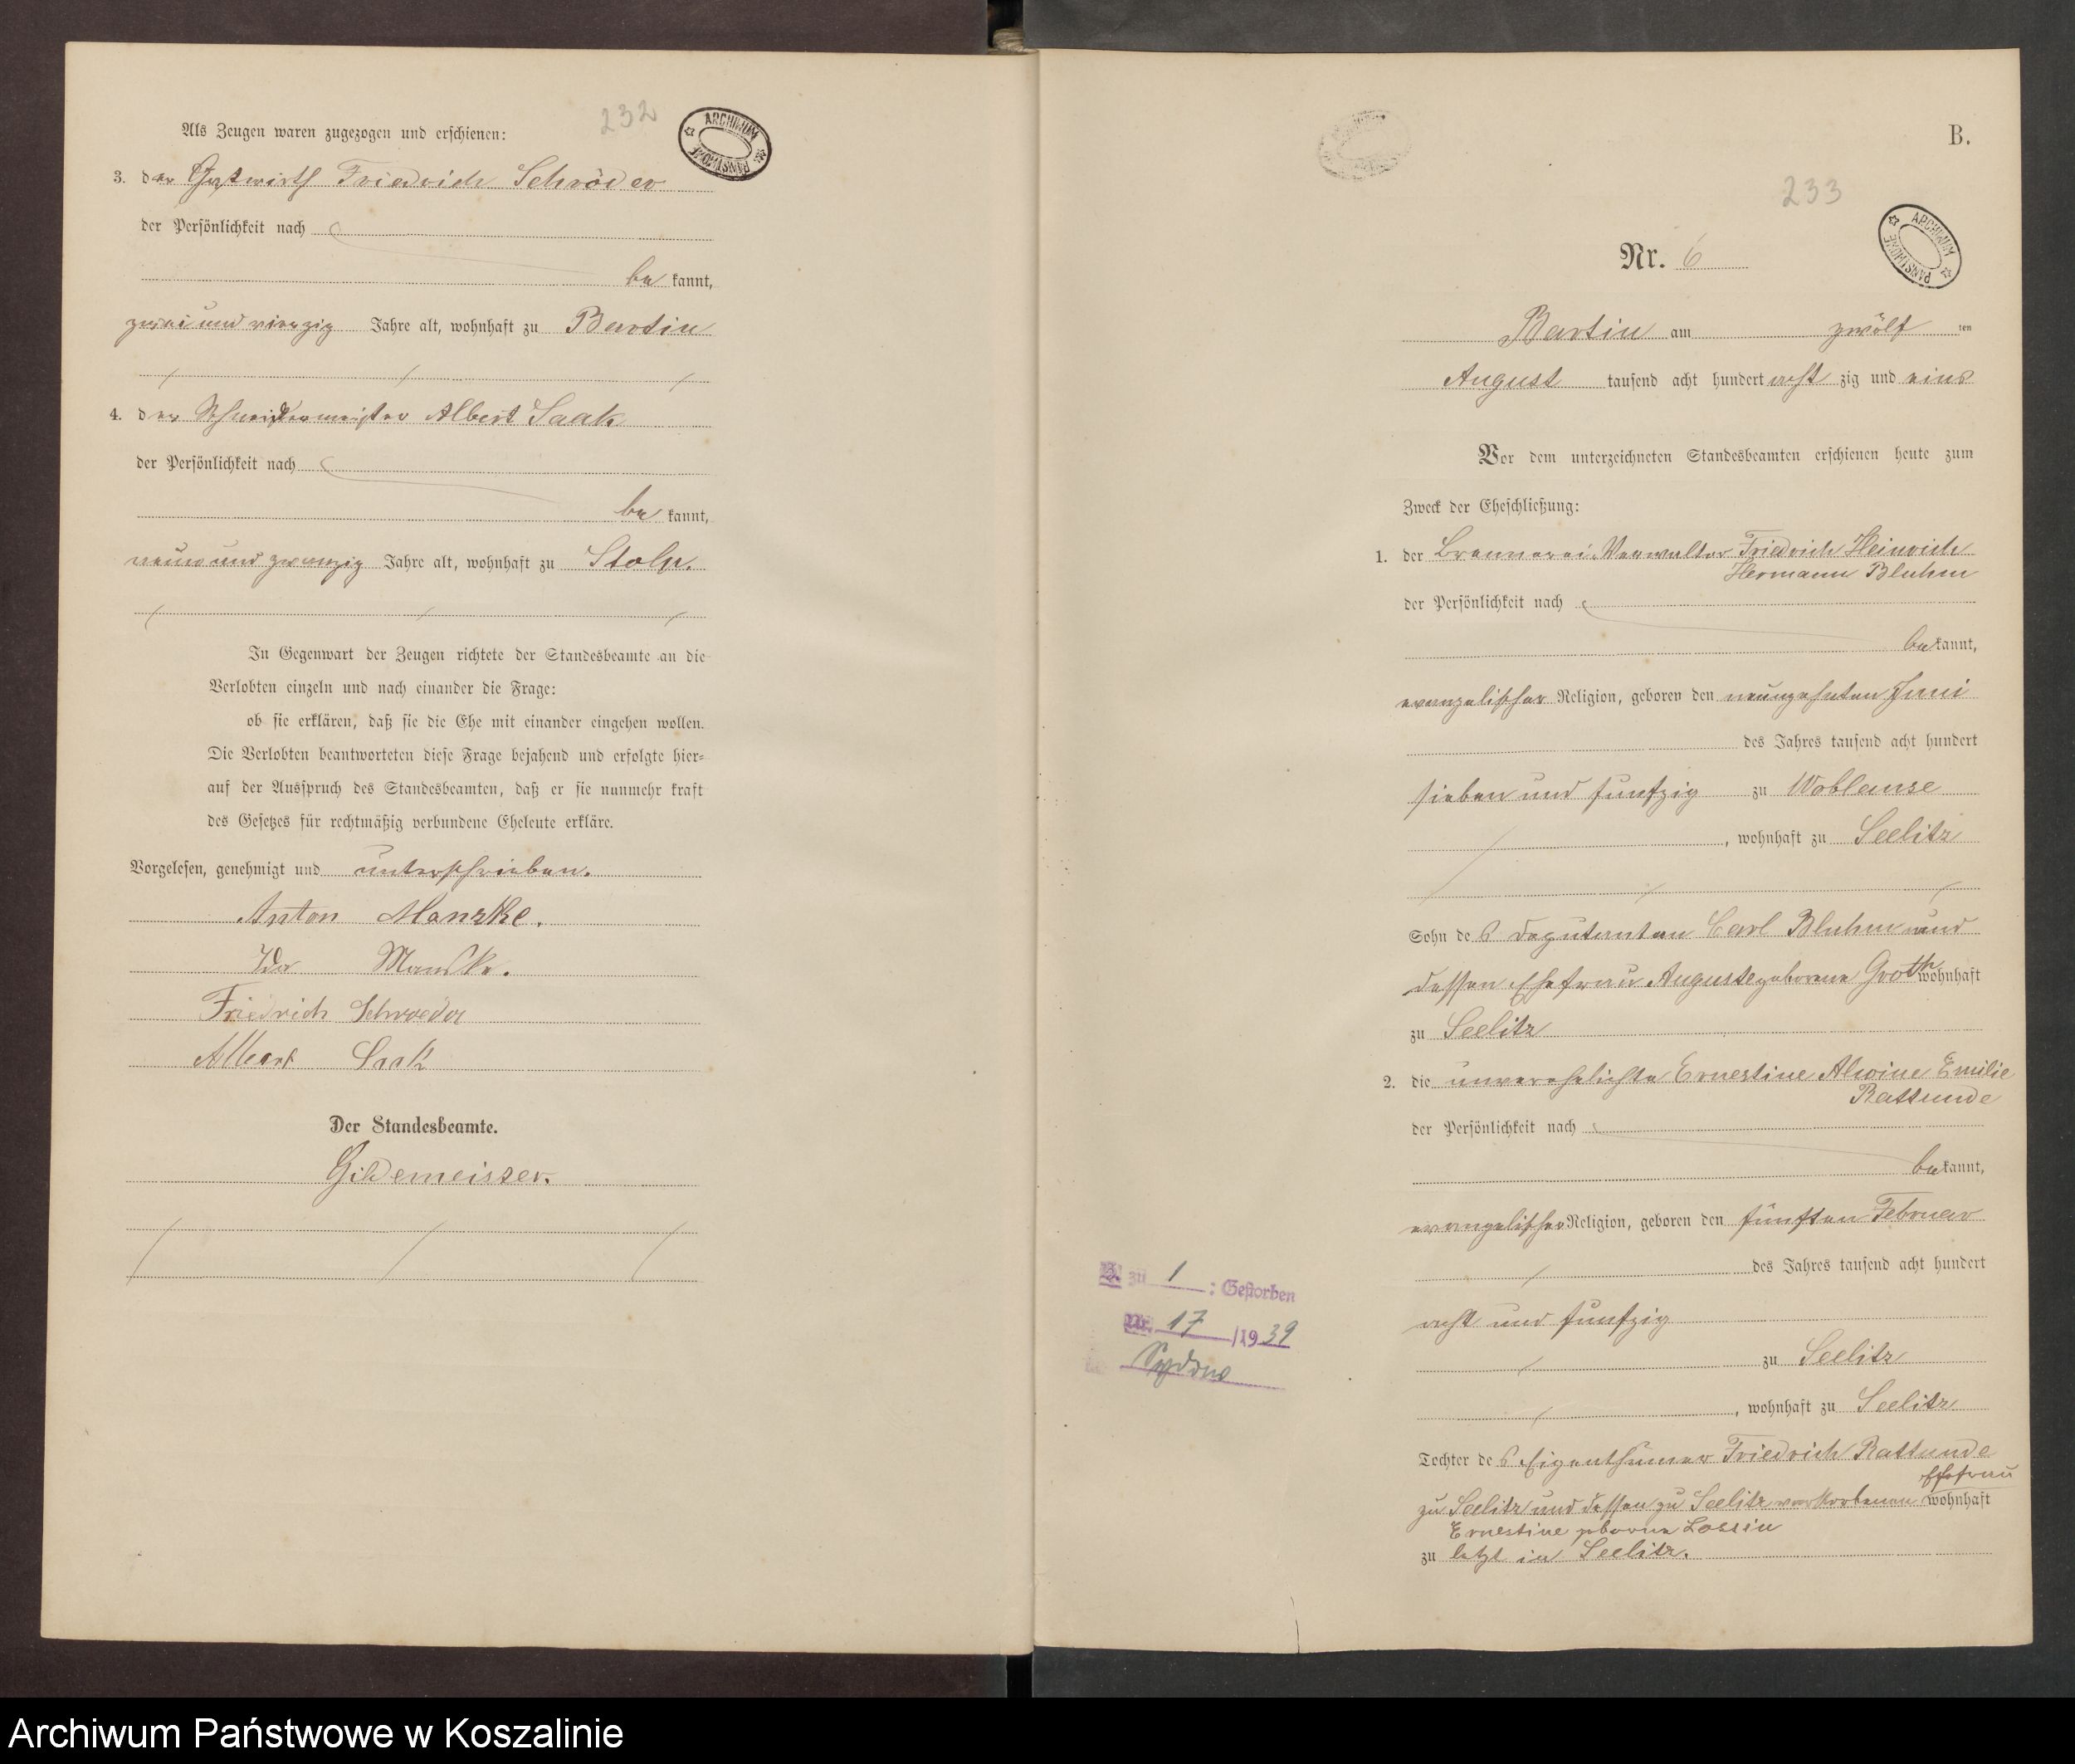 232
ARCHIWUM PAŃSTWOWE
Als Zeugen waren zugezogen und erschienen:
3. der Gastwirth Friedrich Schröder
der Persönlichkeit nach
be kannt,
zwei und vierzig Jahre alt, wohnhaft zu Bartin
4. der Schneidermeister Albert Saak
der Persönlichkeit nach
be kannt,
neun und zwanzig Jahre alt, wohnhaft zu Stolp.
In Gegenwart der Zeugen richtete der Standesbeamte an die
Verlobten einzeln und nach einander die Frage:
ob sie erklären, daß sie die Ehe mit einander eingehen wollen.
Die Verlobten beantworteten diese Frage bejahend und erfolgte hier=
auf der Ausspruch des Standesbeamten, daß er sie nunmehr kraft
des Gesetzes für rechtmäßig verbundene Eheleute erkläre.
Vorgelesen, genehmigt und unterschrieben.
Anton Manzke.
Ida Manske.
Friedrich Schroeder
Albert Saak
Der Standesbeamte.
Gildemeister.
B.
233
ARCHIWUM PAŃSTWOWE
Nr. 6
Bartin am zwölf ten
August tausend acht hundert acht zig und eins
Vor dem unterzeichneten Standesbeamten erschienen heute zum
Zweck der Eheschließung:
1. der Brennerei-Verwalter Friedrich Heinrich
Hermann Bluhm
der Persönlichkeit nach
be kannt,
evangelischer Religion, geboren den neunzehnten Juni
des Jahres tausend acht hundert
sieben und funfzig zu Woblanse
, wohnhaft zu Seelitz
Sohn des Deputanten Carl Bluhm und
dessen Ehefrau Auguste geborene Groth wohnhaft
zu Seelitz
2. die unverehelichte Ernestine Alwine Emilie
Rattunde
der Persönlichkeit nach
be kannt,
evangelischer Religion, geboren den fünften Februar
des Jahres tausend acht hundert
acht und funfzig
zu Seelitz
, wohnhaft zu Seelitz
Tochter des Eigenthümer Friedrich Rattunde
Ehefrau
zu Seelitz und dessen zu Seelitz verstorbenen wohnhaft
Ernestine geborne Lossin
zu letzt in Seelitz.
B. zu 1 : Gestorben
Nr. 17 /1939
Sydow
Archiwum Państwowe w Koszalinie